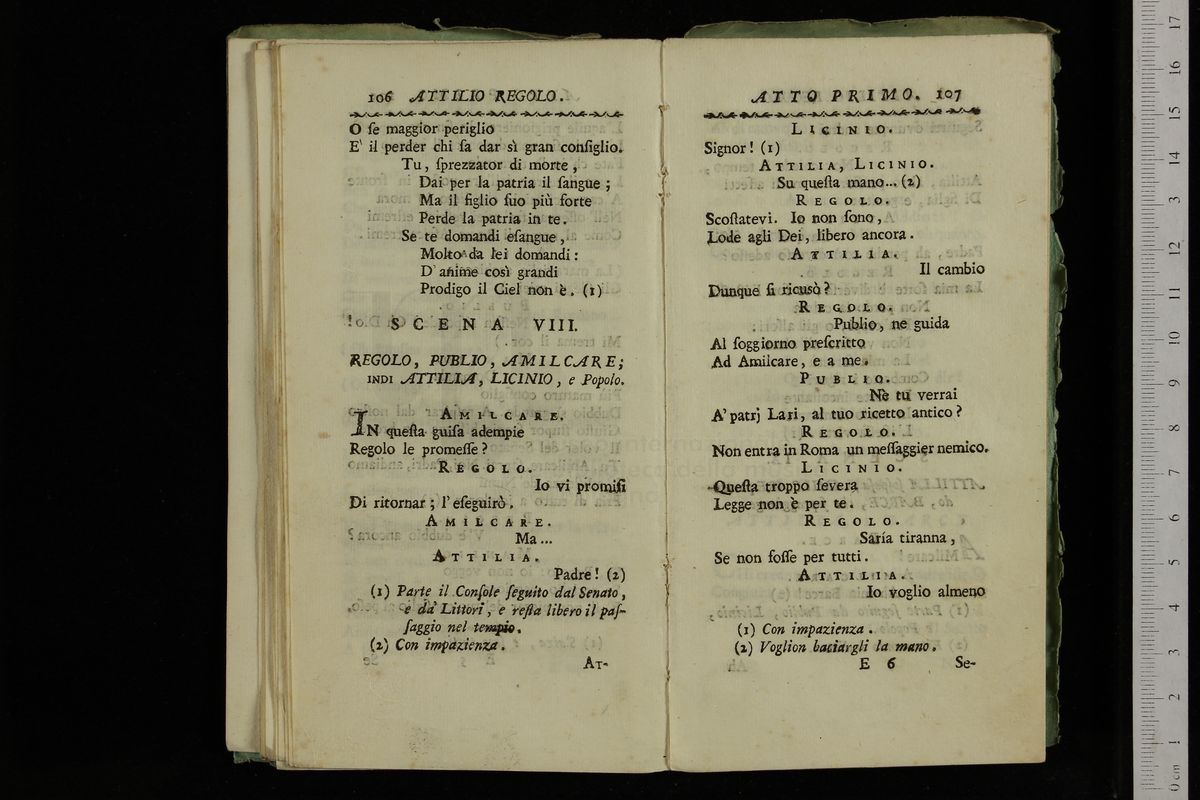 106 ATTILIO REGOLO.
O ſe maggior periglio
E' il perder chi ſa dar sì gran conſiglio.
Tu, ſprezzator di morte,
Dai per la patria il ſangue;
Ma il figlio ſuo più forte
Perde la patria in te.
Se te domandi eſangue,
Molto da lei domandi:
D' anime così grandi
Prodigo il Ciel non è. (1)
SCENA VIII.
REGOLO, PUBLIO, AMILCARE;
INDI ATTILIA, LICINIO, e Popolo.
AMILCARE.
IN queſta guiſa adempie
Regolo le promeſſe?
REGOLO.
Io vi promiſi
Di ritornar; l' eſeguirò.
AMILCARE.
Ma...
ATTILIA.
Padre! (2)
(1) Parte il Conſole ſeguito dal Senato,
e da' Littori, e reſta libero il paſ-
ſaggio nel tempio.
(2) Con impazienza.
AT-
ATTO PRIMO. 107
LICINIO.
Signor! (1)
ATTILIA, LICINIO.
Su queſta mano... (2)
REGOLO.
Scoſtatevi. Io non ſono,
Lode agli Dei, libero ancora.
ATTILIA.
Il cambio
Dunque ſi ricusò?
REGOLO.
Publio, ne guida
Al ſoggiorno preſcritto
Ad Amilcare, e a me.
PUBLIO.
Nè tu verrai
A' patrj Lari, al tuo ricetto antico?
REGOLO.
Non entra in Roma un meſſaggier nemico.
LICINIO.
Queſta troppo ſevera
Legge non è per te.
REGOLO.
Saría tiranna,
Se non foſſe per tutti.
ATTILIA.
Io voglio almeno
(1) Con impazienza.
(2) Voglion baciargli la mano.
E 6 Se-
0 cm 1 2 3 4 5 6 7 8 9 10 11 12 13 14 15 16 17